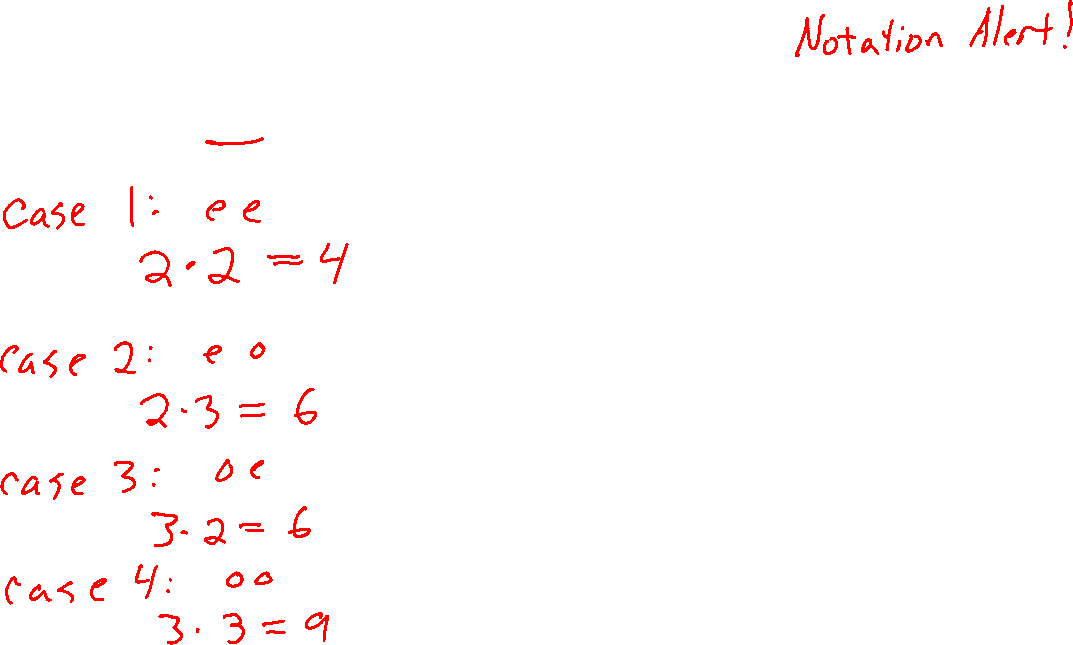 Notation Alert!
case 1: e e
2 · 2 = 4
case 2: e o
2 · 3 = 6
case 3: o e
3 · 2 = 6
case 4: o o
3 · 3 = 9